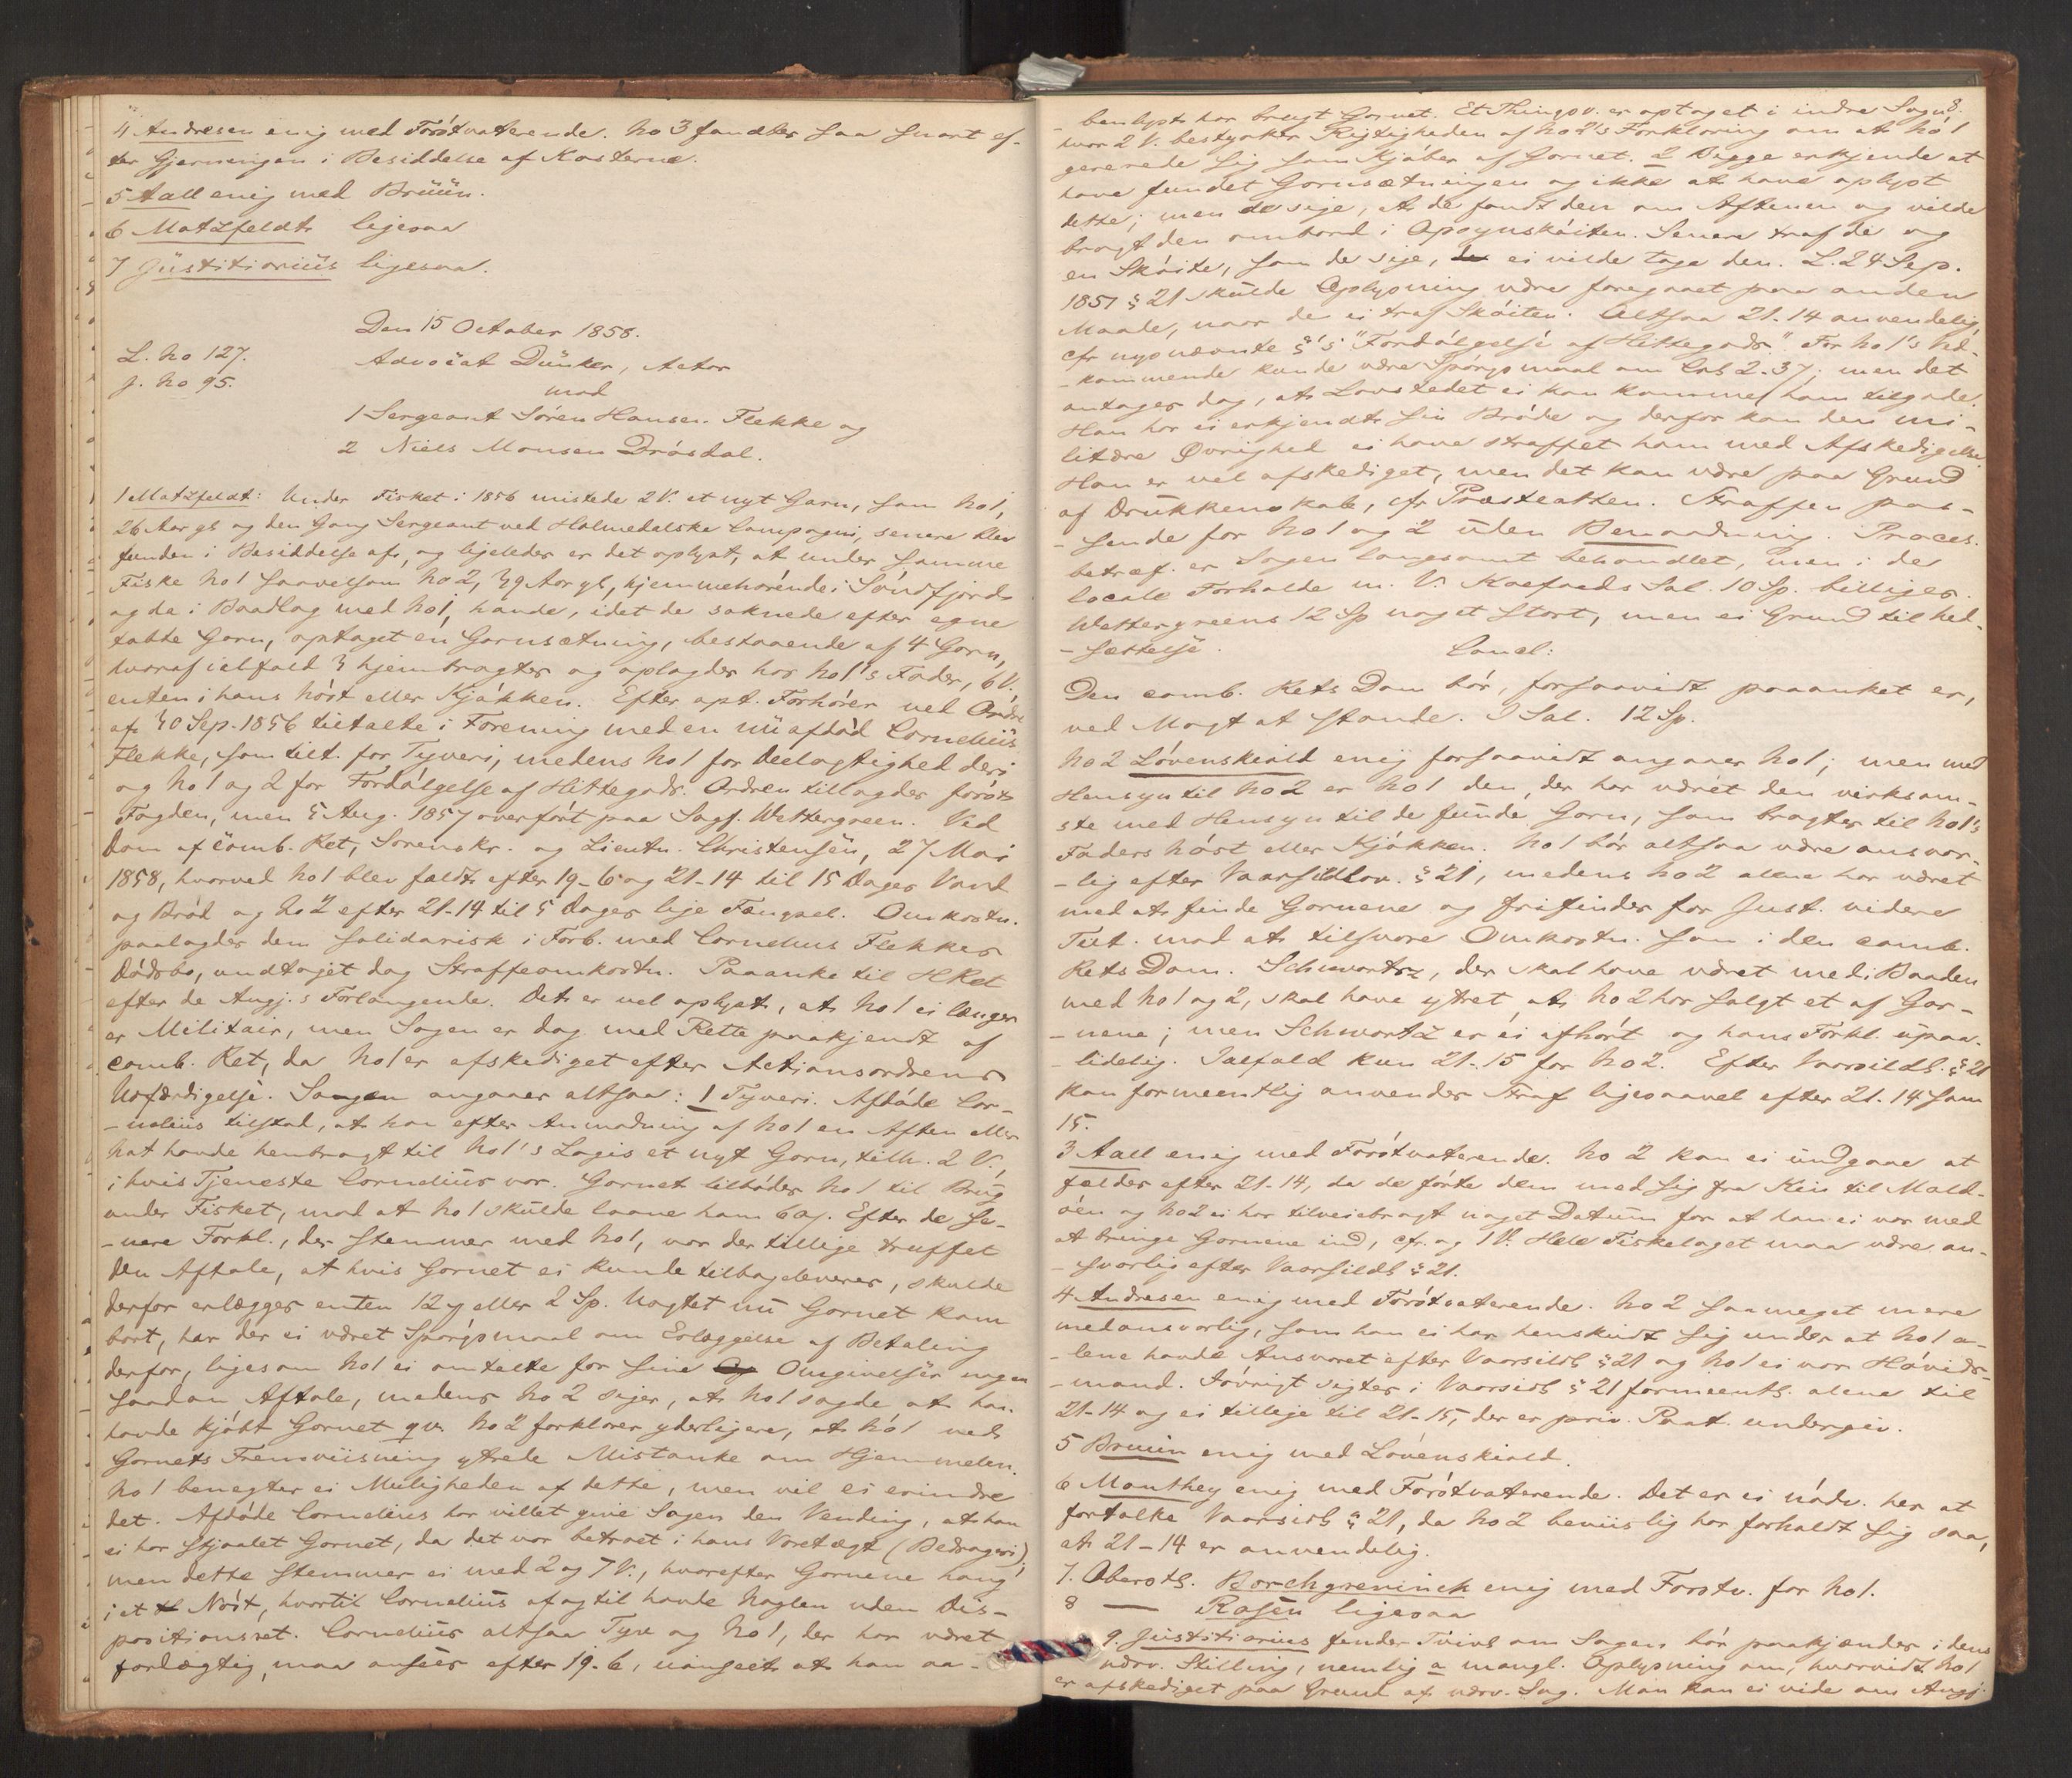 4 Andresen enig med Förstvoterende. No 3 fandtes saa snart ef-
ter Gjerningen i Besiddelse af Kosterne.
5 Aall enig med Bruun.
6 Motzfeldt ligesaa
7 Justitiarius ligesaa.
Den 15 October 1858.
L. No 127.
Advocat Dunker, Actor
J. No 95.
mod
1 Sergeant Sören Hansen Flekke og
2 Niels Monsen Drösdal.
1 Motzfeldt: Under Fisket i 1856 mistede 2 V. et nyt Garn, som No 1,
26 Aar gl. og den Gang Sergeant ved Holmedalske Compagni, senere blev
funden i Besiddelse af, og ligeledes er det oplyst, at under samme
Fiske No 1 saavelsom No 2, 39 Aar gl., hjemmehörende i Söndfjord
og da i Baadlag med No 1, havde, idet de søknede efter egne
tabte Garn, optaget en Garnsætning, bestaaende af 4 Garn,
hvoraf ialfald 3 hjembragtes og oplagdes hos No 1's Fader, 6 V.,
enten i hans Nöst eller Kjökken. Efter opt. Forhörer ved Ordre
af 30 Sep. 1856 tiltalte i Forening med en nu afdöd Cornelius
Flekke, som tilt. for Tyveri, medens No 1 for Deelagtighed deri
og No 1 og 2 for Fordölgelse af Hittegods. Ordren tillagdes först
Fogden, men 5 Aug. 1857 overfört paa Sagf. Wettergreen. Ved
Dom af comb. Ret, Sorenskr. og Lieutn. Christensen, 27 Mai
1858, hvorved No 1 blev fældt efter 19-6 og 21-14 til 15 Dages Vand
og Bröd og No 2 efter 21-14 til 5 Dages lige Fængsel. Omkostn.
paalagdes dem solidarisk i Forb. med Cornelius Flekkes
Dödsbo, undtaget dog Straffeomkostn. Paaanke til HRet
efter de Angj.s Forlangende. Det er vel oplyst, at No 1 ei længer
er Militair, men Sagen er dog med Rette paakjendt af
comb. Ret, da No 1 er afskediget efter Actionsordrens
Udfærdigelse. Sagen angaaer altsaa: 1 Tyveri. Afdöde Cor-
-nelius tilstod, at han efter Anmodning af No 1 en Aften eller
Nat havde henbragt til No 1's Logis et nyt Garn, tilh. 2 V.,
i hvis Tjeneste Cornelius var. Garnet tilbödes No 1 til Brug
under Fisket, mod at No 1 skulde laane ham 6 . Efter de se-
-nere Forkl., der stemmer med No 1, var der tillige truffet
den Aftale, at hvis Garnet ei kunde tilbageleveres, skulde
derfor erlægges enten 12 eller 2 Sp. Uagtet nu Garnet kom
bort, har der ei været Spörgsmaal om Erlæggelse af Betaling
derfor, ligesom No 1 ei omtalte for sine Omgivelser nogen
saadan Aftale, medens No 2 siger, at No 1 sagde at han
havde kjöbt Garnet qv. No 2 forklarer yderligere, at No 1 ved
Garnets Fremviisning yttrede Mistanke om Hjemmelen.
No 1 benegter ei Muligheden af dette, men vil ei erindre
det. Afdöde Cornelius har villet give Sagen den Vending, at han
ei har stjaalet Garnet, da det var betroet i hans Varetægt (Bedrageri)
men dette stemmer ei med 2 og 7 V., hvorefter Garnene hang
i et Nöst, hvortil Cornelius af og til havde Nøglen uden Dis-
positionsret. Cornelius altsaa Tyv og No 1, der har været
forlægtig, maa ansees efter 19-6, uanseet at han aa-
8.
-benlyst har brugt Garnet. Et Thingsv. er optaget i indre Sogn
hvor 2 V. bestyrkte Rigtigheden af No 2's Forklaring om at No 1
gererede sig som Kjöber af Garnet. 2 Begge erkjende at
have fundet Garnsætningen og ikke at have oplyst
dette; men de sige, at de fandt den om Aftenen og vilde
bragt den ombord i Opsynsköiten. Senere traf de og
en Sköite, som de sige, ei vilde tage den. L. 24 Sep.
1851 § 21 skulde Oplysning være foregaaet paa anden
Maade, naar de ei traf Sköiten. Altsaa 21-14 anvendelig,
cfr nysnævnte §'s "Fordölgelse af Hittegods". For No 1's Ved-
-kommende kunde være Spörgsmaal om Lov 2-37; men det
antages dog, at Lovstedet ei kan komme ham tilgode.
Han har ei erkjendt sin Bröde og derfor kan den mi-
litære Øvrighed ei have straffet ham med Afskedigelse.
Han er vel afskediget, men det kan være paa Grund
af Drukkenskab, cfr Præsteatten. Straffen pas-
-sende for No 1 og 2 uden Benaadning. Proces.
betræf. er Sagen langsomt behandlet, men i de
locale Forholde m. V. Koefoeds Sal. 10 Sp. billiges.
Wettergreens 12 Sp noget stort, men ei Grund til Ned-
-sættelse.
Concl:
Den comb. Rets Dom bör, forsaavidt paaanket er,
ved Magt at stande. I Sal. 12 Sp.
No 2 Lövenskiold enig forsaavidt angaaer No 1; men med
Hensyn til No 2 er No 1 den, der har været den virksom-
ste med Hensyn til de fundne Garn, som bragtes til No 1's
Faders Nöst eller Kjökken. No 1 bör altsaa være ansvar-
-lig efter Vaarsildlov. § 21, medens No 2 alene har været
med at finde Garnene og frifindes for Just. videre
Tilt. mod at tilsvare Omkostn. som i den comb.
Rets Dom. Schwartz, der skal have været med i Baaden
med No 1 og 2, skal have yttret, at No 2 har solgt et af Gar-
-nene; men Schwartz er ei afhört og hans Forkl. upaa-
-lidelig. Ialfald kun 21-15 for No 2. Efter Vaarsildl. § 21
kan formeentlig anvendes Straf ligesaavel efter 21-14 som
15.
3 Aall enig med Förstvoterende. No 2 kan ei undgaae at
fældes efter 21-14, da de förte dem med sig fra Kin til Mold-
öen og No 2 ei har tilveiebragt noget Datum for at han ei var med
at bringe Garnene ind, cfr. og 1 V. Hele Fiskelaget maa være an-
-svarlig efter Vaarsildl § 21.
4 Andresen enig med Förstvoterende. No 2 saameget mere
medansvarlig, som han ei har henskudt sig under at No 1 a-
-lene havde Ansvaret efter Vaarsildl § 21 og No 1 ei var Höveds-
-mand. Iövrigt sigtes i Vaarsildl § 21 formeentl. alene til
21-14 og ei tillige til 21-15, der er priv. Paat. undergiv.
5 Bruun enig med Lövenskiold.
6 Manthey enig med Förstvoterende. Det er ei nödv. her at
fortolke Vaarsildl § 21, da No 2 beviislig har forholdt sig saa,
at 21-14 er anvendelig.
7. Oberstl. Borchgrevinck enig med Förstv. for No 1.
8 — Rosén ligesaa
9. Justitiarius finder Tvivl om Sagen bör paakjendes i dens
nærv. Stilling, nemlig a mangl. Oplysning om, hvorvidt No 1
er afskediget paa Grund af nærv. Sag. Man kan ei vide om Angj.